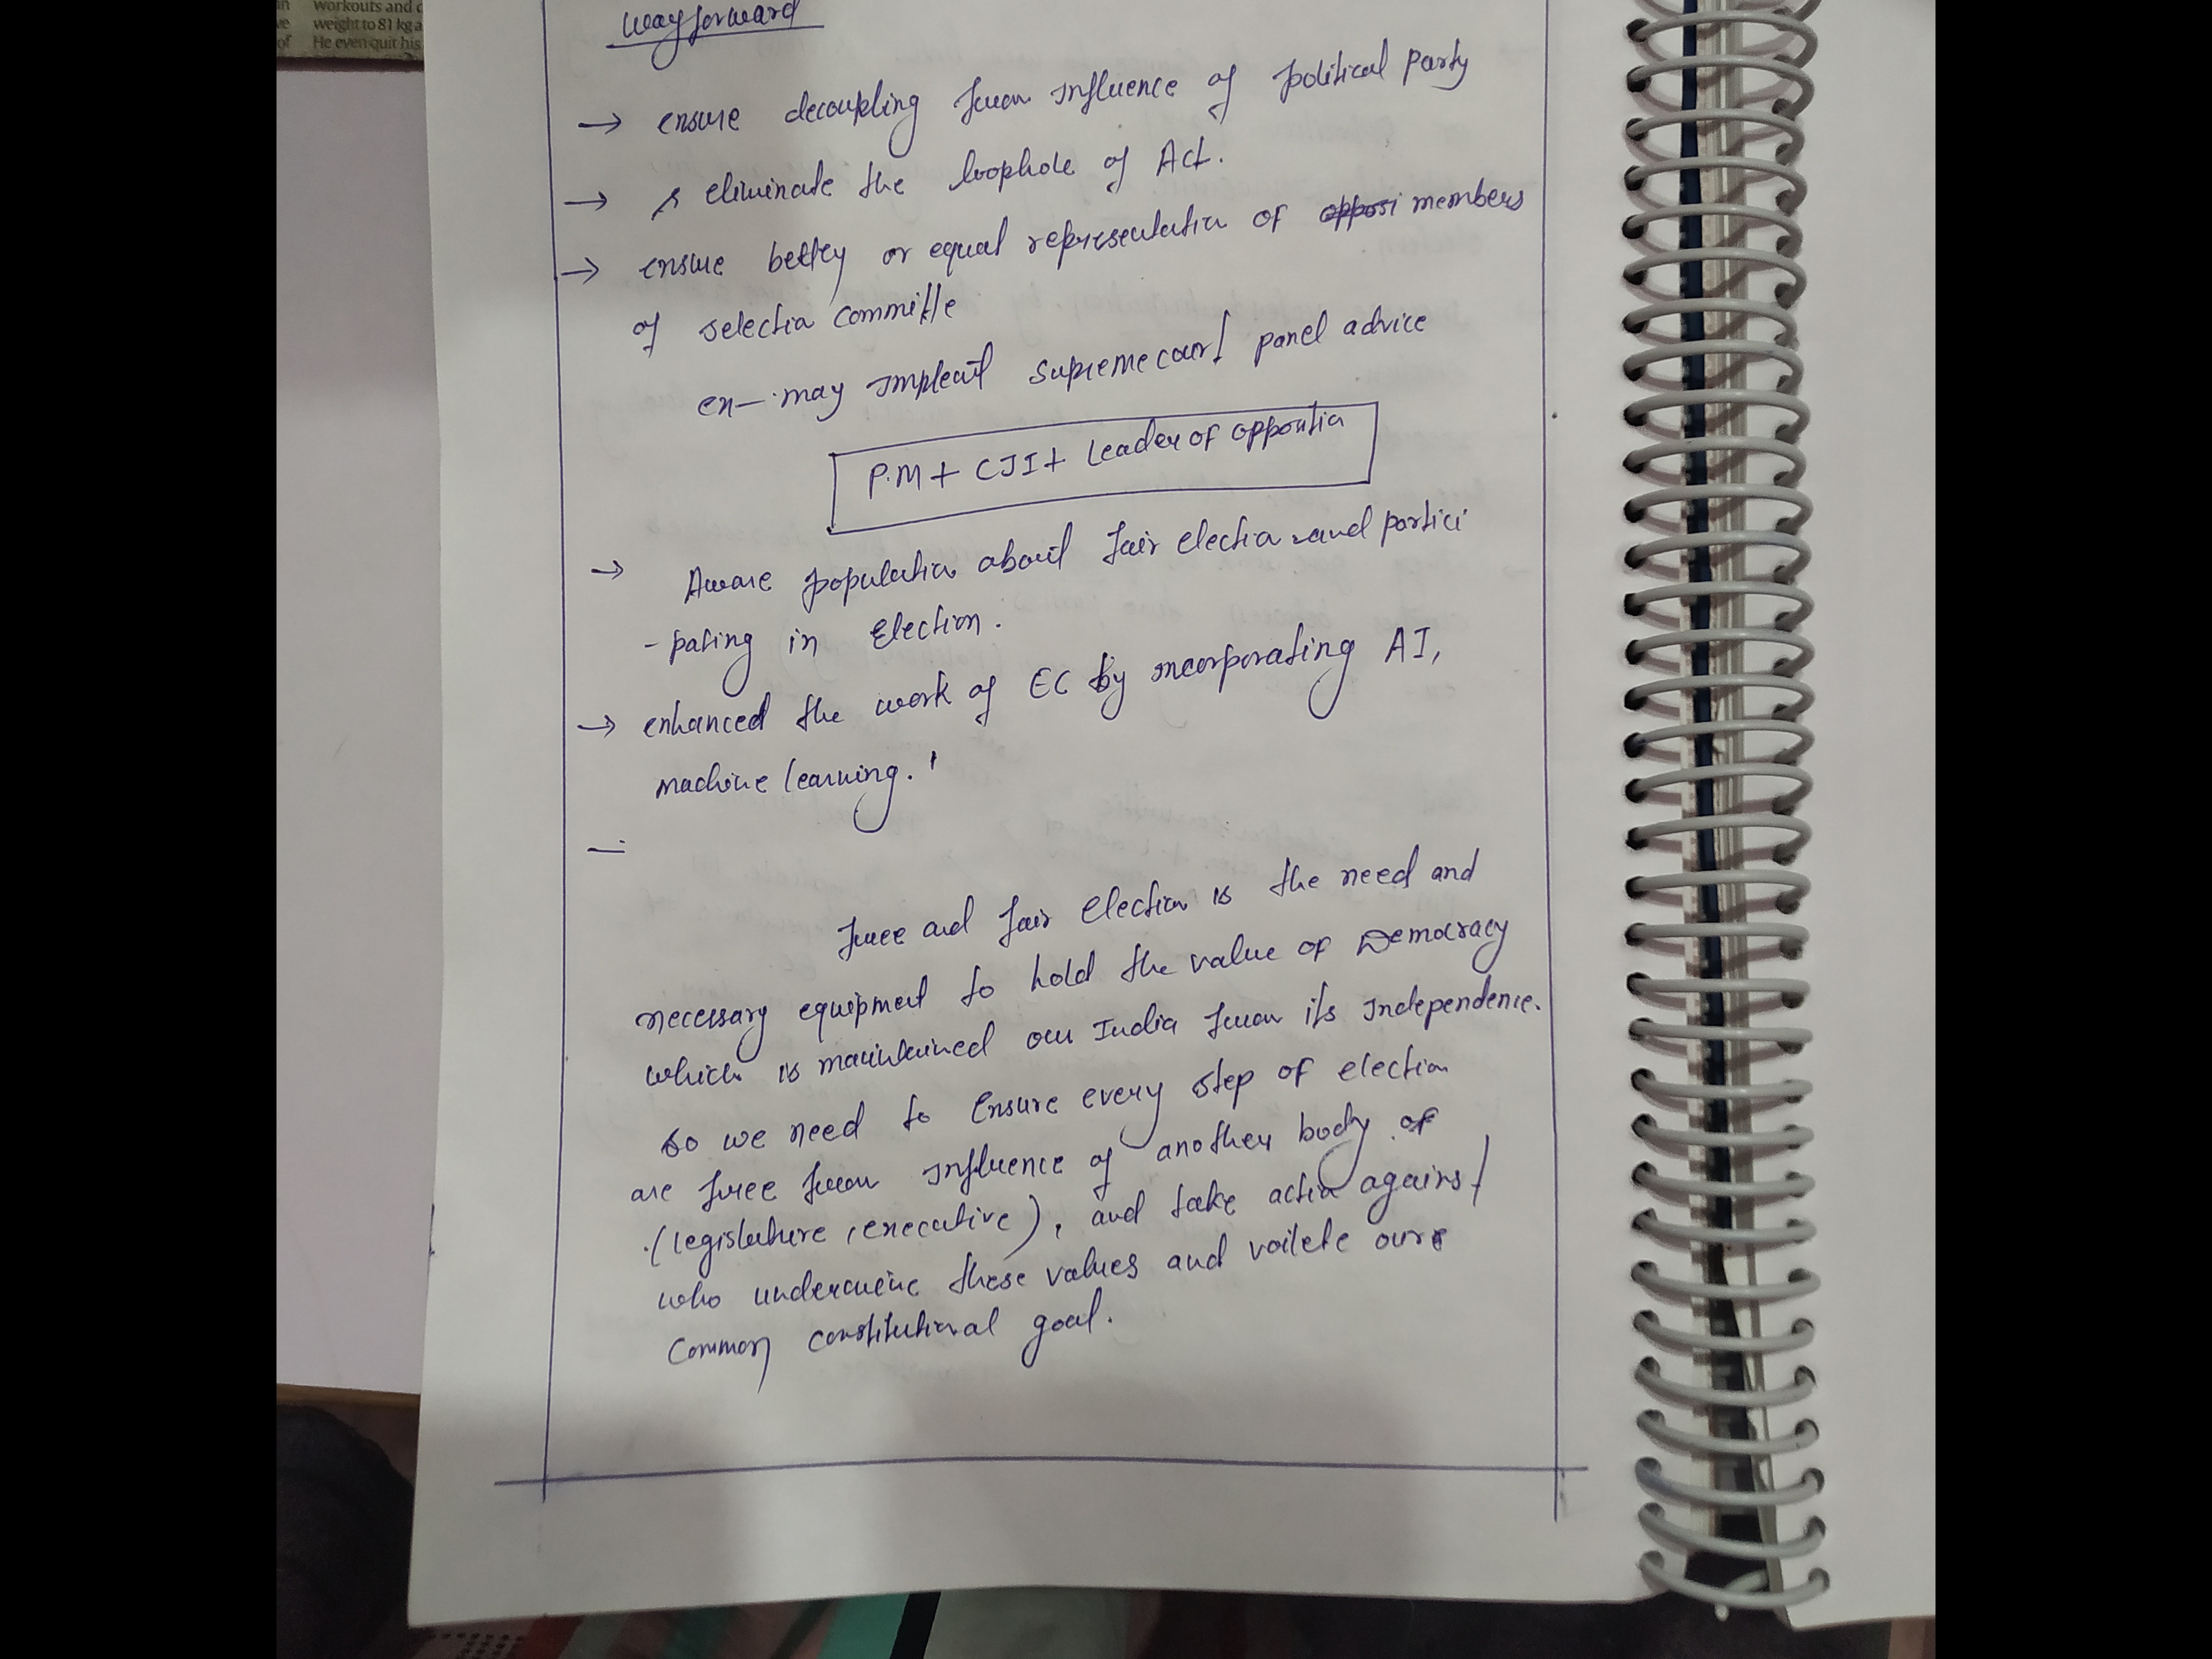 workouts and c
weight to 81 kg a
of He even quit his
Wayforward
→ ensure decoupling from influence of political party
→ eliminate the loophole of Act.
→ ensure better or equal representation of opposi members
of selection committe
ex- may implent supreme court panel advice
P.M + CJI + Leader of opposition
→ Aware population about fair election and partici
-pating in Election.
→ enhanced the work of EC by incorporating AI,
machine learning.
free and fair Election is the need and
necessary equipment to hold the value of Democracy
which is maintained our India from its Independence.
so we need to Ensure every step of election
are free from influence of another body of
(legislature, executive), and take action against
who undermine these values and voilete our
common constitutional goal.